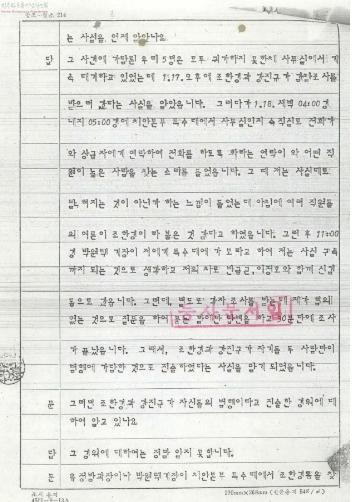 는 사실을 언제 알았나요
답 그 사건에 가담된 우리 5명은 모두 귀가하지 못한채 사무실에서 계
속 대기하고 있었는데 1.17.오후에 조한경과 강진규가 감찰조사를
받으며 갔다는 사실을 알았읍니다. 그러다가 1.18. 새벽 04:00경
내지 05:00경에 치안본부 특수대에서 사무실인지 숙직실로 전화가
와 상급자에게 연락하여 전화를 하도록 하라는 연락이 와 어떤 직
원이 높은 사람을 찾는 소리를 들었읍니다. 그 때 저는 사실대로
밝혀지는 것이 아닌가 하는 느낌이 들었는데 아침에 여러 직원들
의 여론이 조한경이 다 불은 것 같다고 하였읍니다. 그런 후 11:00
경 박원택 계장이 저에게 특수대에 가 보라고 하여 저는 사실 구속
까지 되는 것으로 생각하고 저의 차로 반금곤, 이정호와 함께 신길
동으로 갔읍니다. 그런데, 별도로 각자 조사를 받는데
있는 것으로 질문을 하여 묻는 말에만 답변을 하고 30분만에 조사
가 끝났읍니다. 그래서, 조한경과 강진규가 자기들 두 사람만이
범행에 가담한 것으로 진술하였다는 사실을 알게 되었읍니다.
문 그러면 조한경과 강진규가 자신들의 범행이라고 진술한 경위에 대
하여 알고 있나요
답 그 경위에 대하여는 정말 알지 못합니다.
문 유정방과장이나 박원택계장이 치안본부 특수대에서 조한경등을 찾